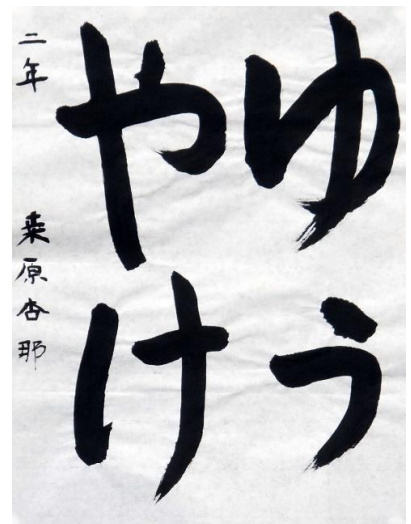 ゆう
やけ
二年 桒原杏那